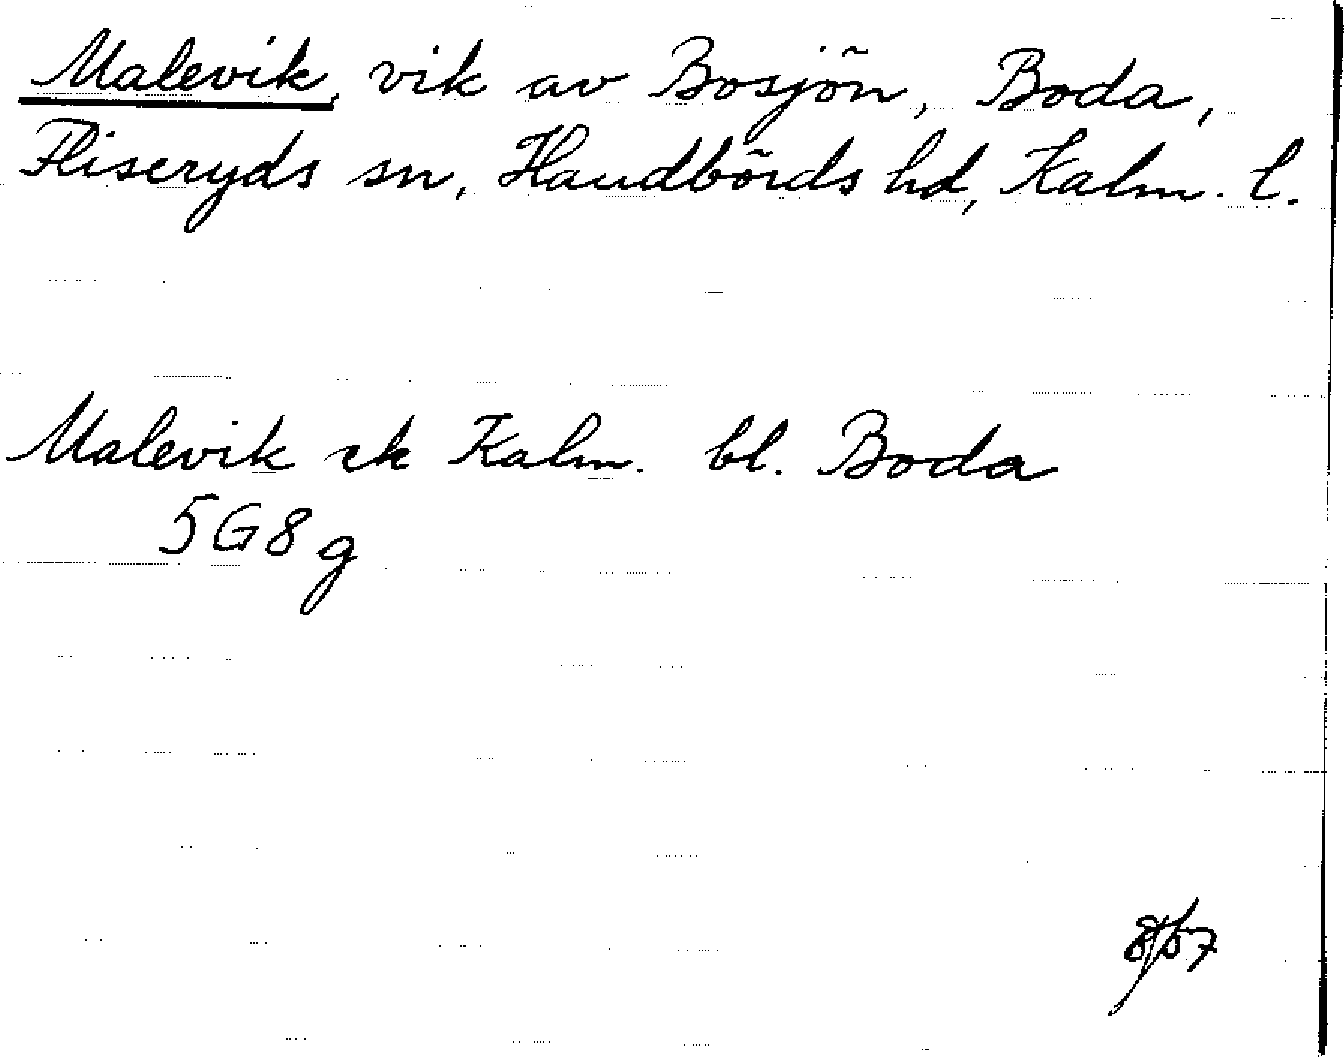 Malevik, vik av Bosjön, Boda,
Fliseryds sn, Handbörds hd, Kalm. l.
Malevik ek Kalm. bl. Boda
5G8g